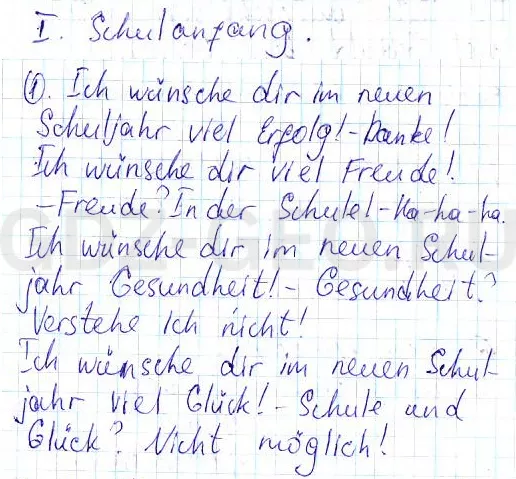 I. Schulanfang.
①. Ich wünsche dir im neuen
Schuljahr viel Erfolg! - Danke!
Ich wünsche dir viel Freude!
- Freude? In der Schule! - Ha-ha-ha.
Ich wünsche dir im neuen Schul-
jahr Gesundheit! - Gesundheit?
Verstehe ich nicht!
Ich wünsche dir im neuen Schul-
jahr viel Glück! - Schule und
Glück? Nicht möglich!